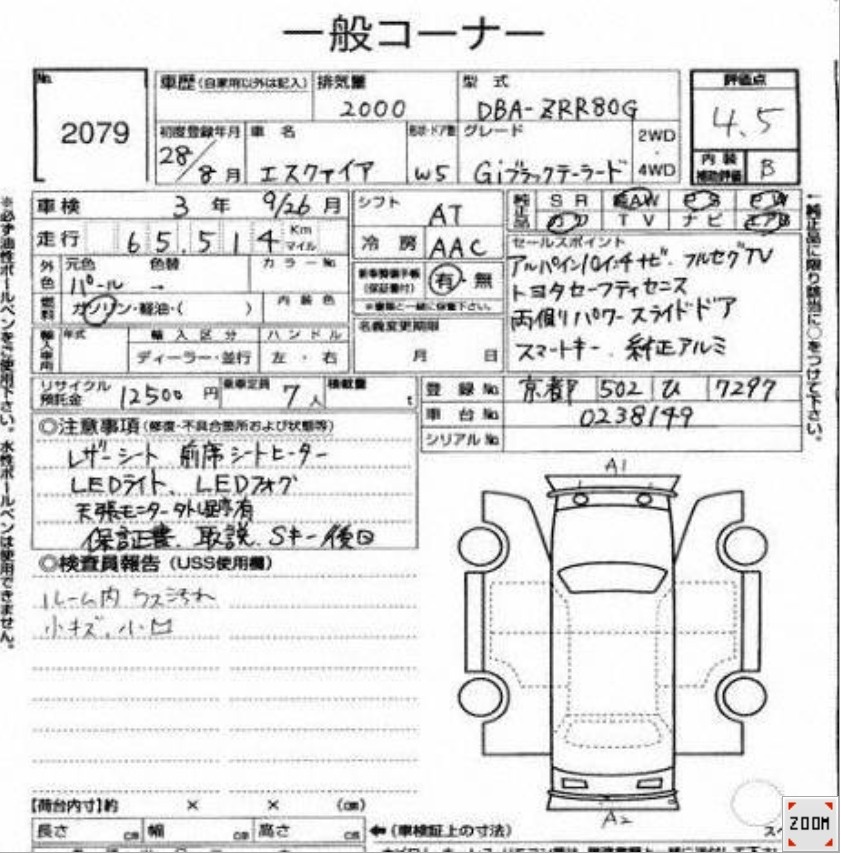 一般コーナー
No. 2079
車歴 (自家用以外は記入)
排気量 2000
型式 DBA-ZRR80G
評価点 4.5
初度登録年月 28/8月
車名 エスクァイア
形状・ドア数 W5
グレード Giブラックテーラード
2WD・4WD
内装補助評価 B
車検 3年 9/26月
シフト AT
純正品 SR AW PS PW
カワ TV ナビ エアB
走行 65,514 Km マイル
冷房 AAC
セールスポイント
アルパイン10インチナビ・フルセグTV
トヨタセーフティセンス
両側パワースライドドア
スマートキー・純正アルミ
外色 元色 パール 色替 → カラーNo.
新車整備手帳(保証書付) 有・無
※書類と一緒に保管下さい。
燃料 ガソリン・軽油・( ) 内装色
名義変更期限
月 日
輸入車用 年式 輸入区分 ハンドル
ディーラー・並行 左・右
リサイクル預託金 12500円
乗車定員 7人
積載量 t
登録No. 京都 502 ひ 7297
車台No. 0238149
シリアルNo.
◎注意事項(修復・不具合箇所および状態等)
レザーシート 前席シートヒーター
LEDライト、LEDフォグ
保証書、取説、Sキー後日
◎検査員報告 (USS使用欄)
ルーム内 ウス汚れ
小キズ、小凹
A1
A2
【荷台内寸】約 × × (cm)
長さ cm 幅 cm 高さ cm
← (車検証上の寸法)
※必ず油性ボールペンをご使用下さい。水性ボールペンは使用できません。
←純正品に限り該当に○をつけて下さい。
ZOOM